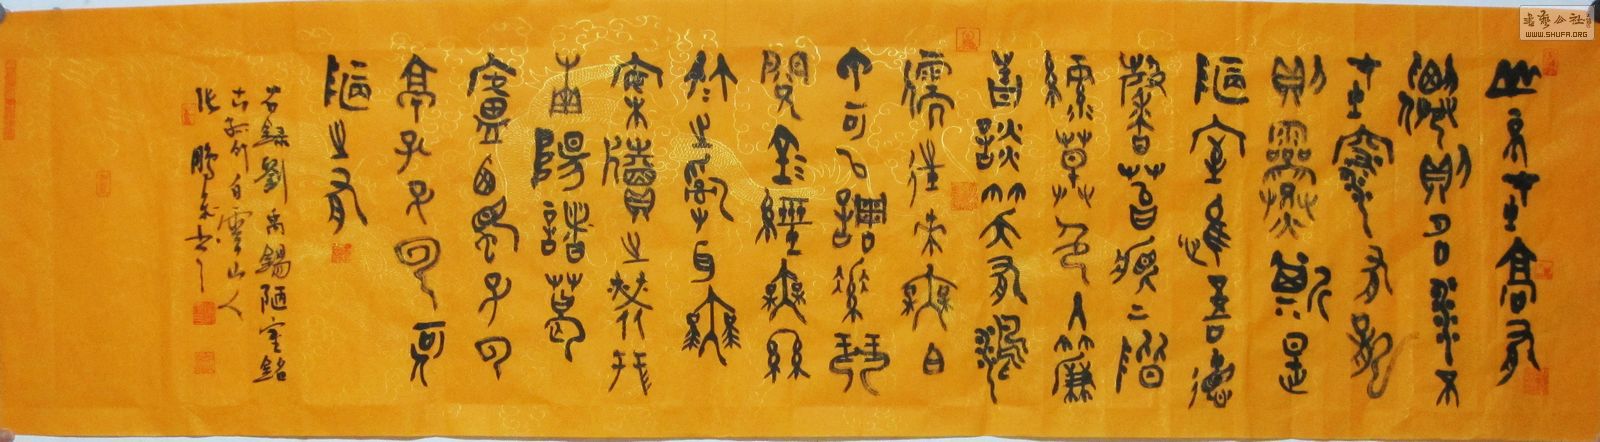 山不在高有
仙則名水不
在深有龍
則靈斯是
陋室惟吾德
馨苔痕上階
綠草色入簾
青談笑有鴻
儒往來無白
丁可以調素琴
閱金經無絲
竹之亂耳無
案牘之勞形
南陽諸葛
廬西蜀子雲
亭孔子曰何
陋之有
右錄劉禹錫陋室銘
古竹白雲山人
张鵬書
书艺公社
WWW.SHUFA.ORG